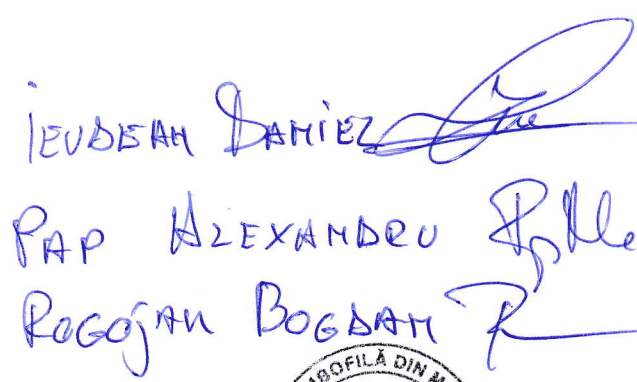 IEUDEAN DANIEL
PAP ALEXANDRU
ROGOJAN BOGDAN
OFILĂ DIN M